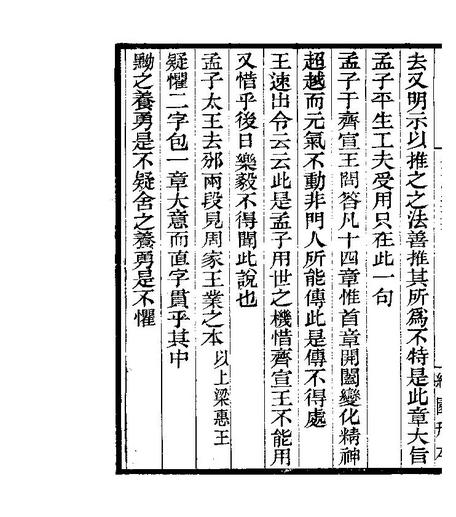 去又明示以推之之法善推其所爲不特是此章大旨
孟子平生工夫受用只在此一句
孟子于齊宣王問答凡十四章惟首章開闔變化精神
超越而元氣不動非門人所能傳此是傳不得處
王速出令云云此是孟子用世之機惜齊宣王不能用
又惜乎後日樂毅不得聞此說也
孟子太王去邠兩段見周家王業之本 以上梁惠王
疑懼二字包一章大意而直字貫乎其中
黝之養勇是不疑舍之養勇是不懼